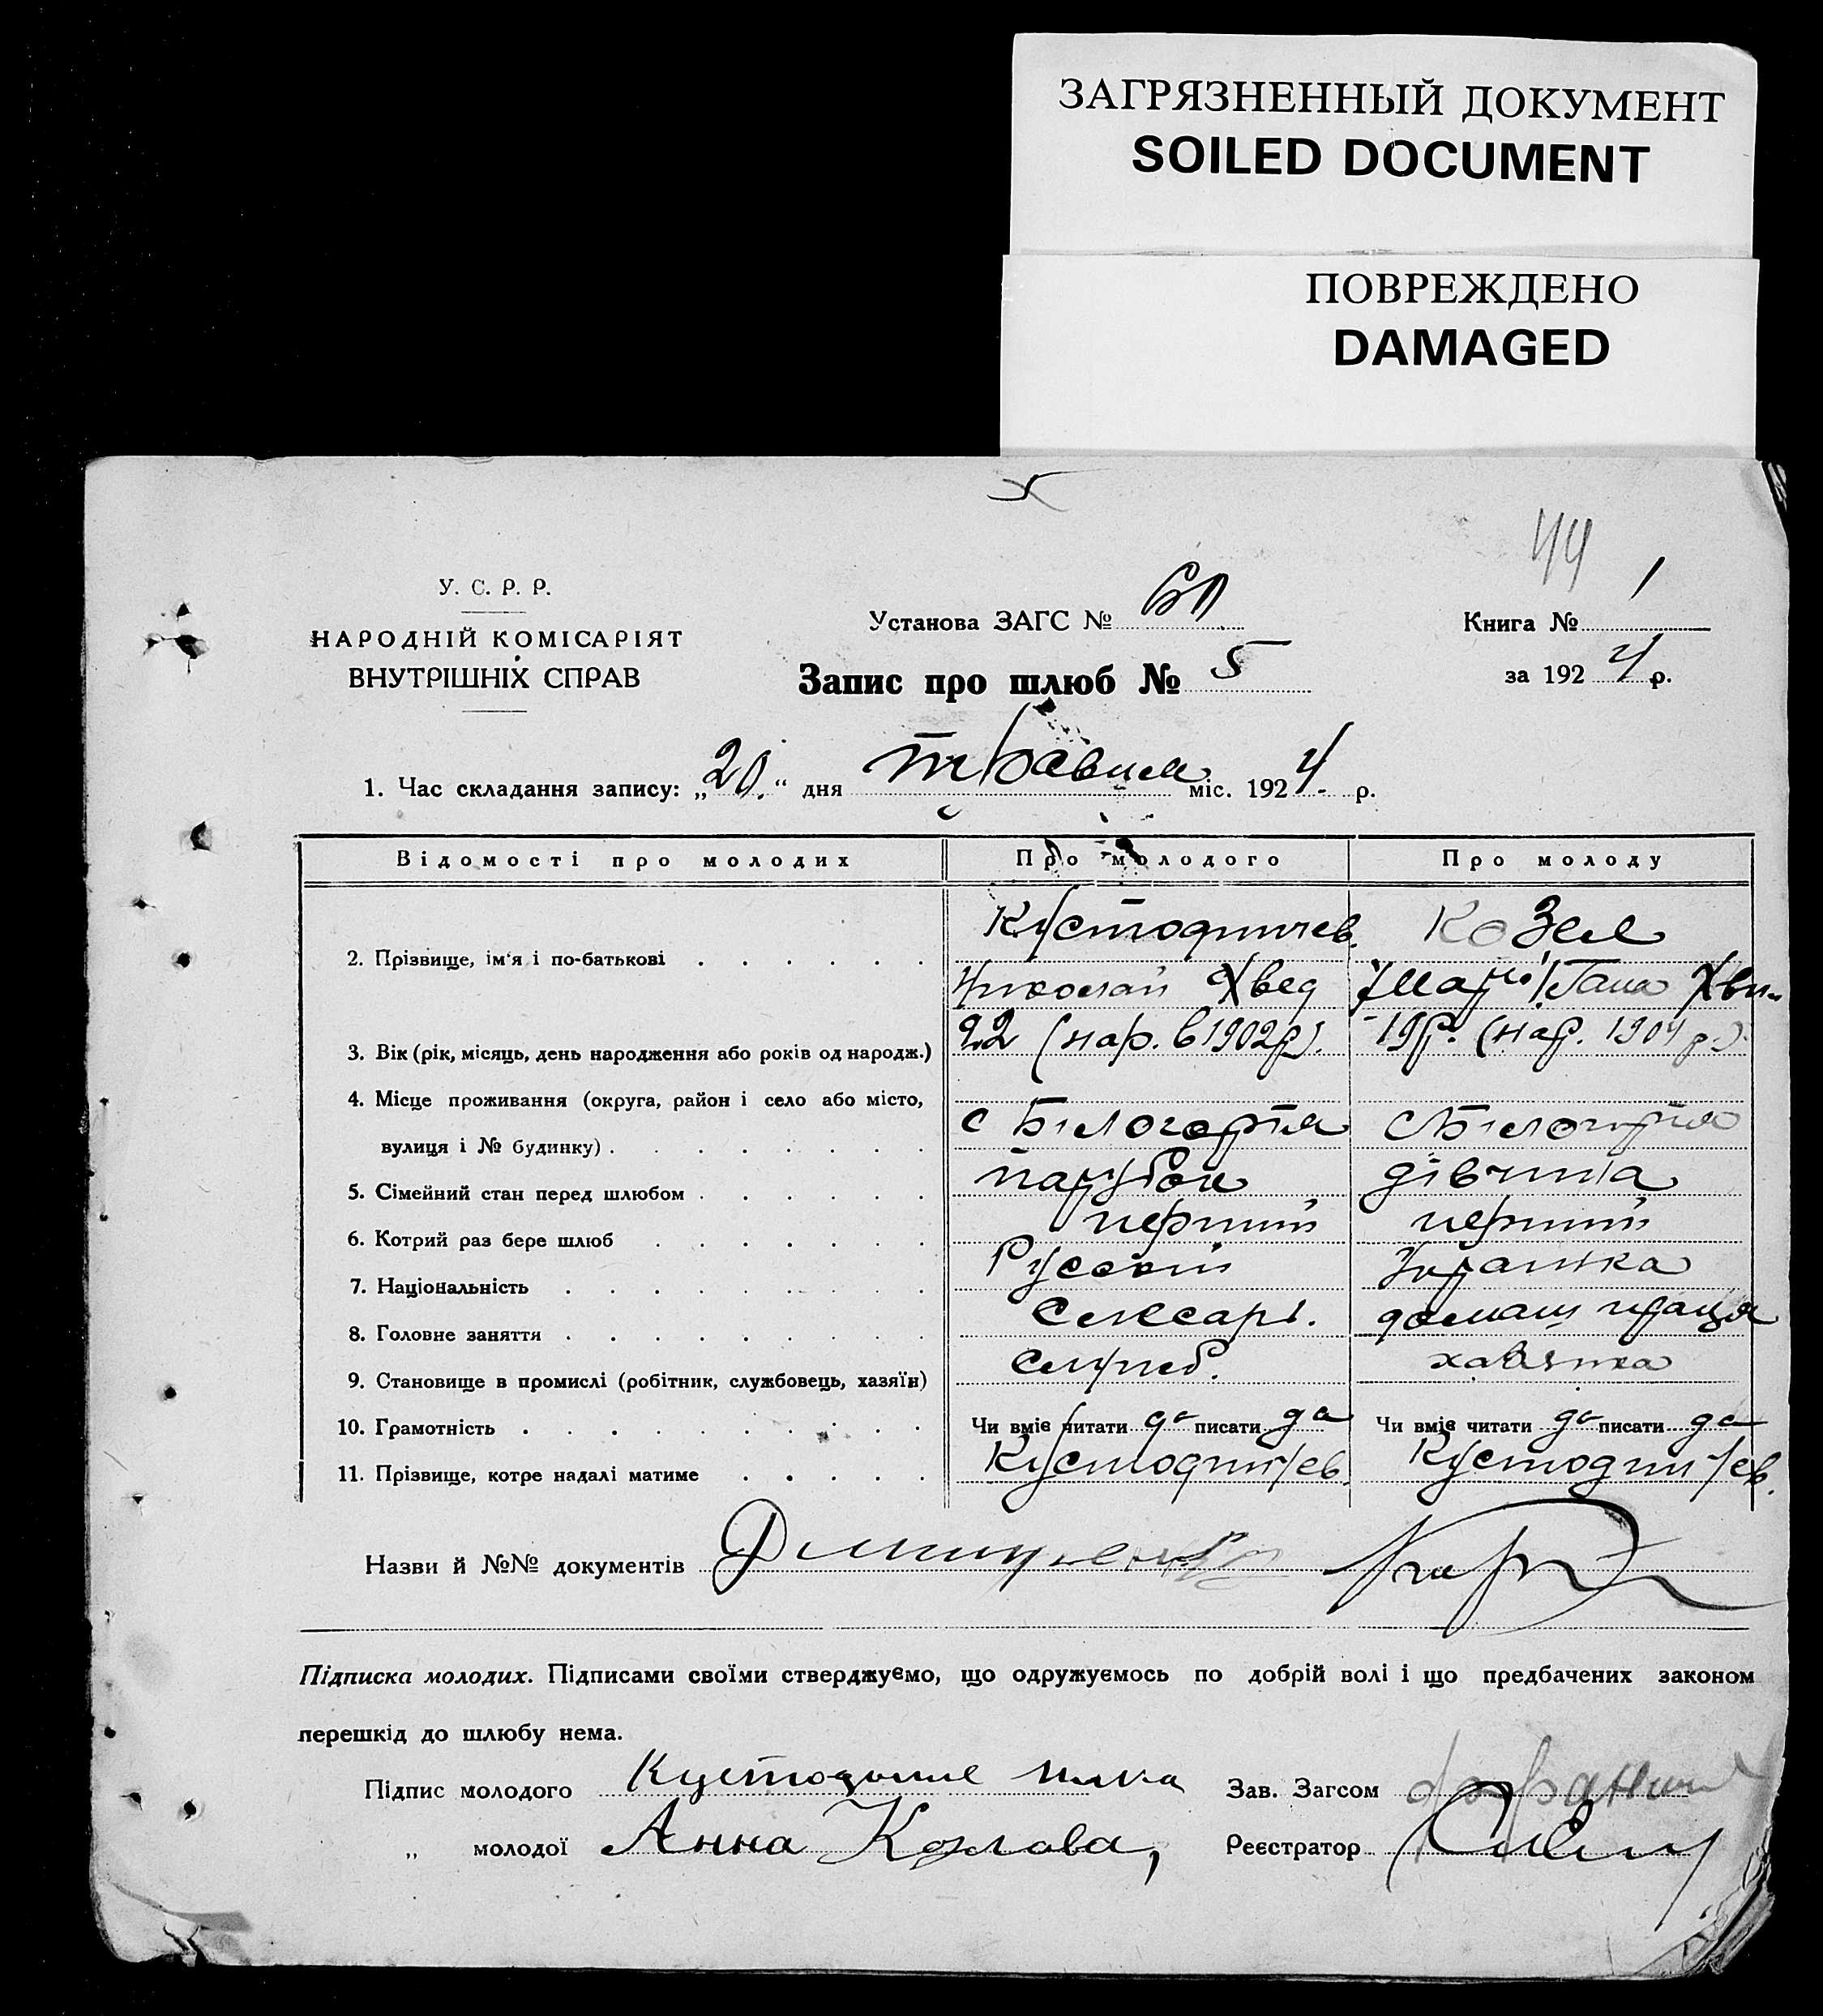 ЗАГРЯЗНЕННЫЙ ДОКУМЕНТ
SOILED DOCUMENT
ПОВРЕЖДЕНО
DAMAGED
44
У. С. Р. Р.
НАРОДНІЙ КОМІСАРІЯТ
ВНУТРІШНІХ СПРАВ
Установа ЗАГС №
Книга № 1
Запис про шлюб № 5
за 1924 р.
1. Час складання запису: „20“ дня травня міс. 1924 р.
Відомості про молодих Про молодого Про молоду
2. Прізвище, ім‘я і по-батькові
Козел
Николай Хвед
3. Вік (рік, місяць, день народження або років од народж.) 22 (нар. в 1902р). 19р. (нар. 1904 р.)
4. Місце проживання (округа, район і село або місто,
вулиця і № будинку) с Білогорпля с Білогорпля
5. Сімейний стан перед шлюбом парубок дівчина
6. Котрий раз бере шлюб перший перший
7. Національність Русский Українка
8. Головне заняття слесарь. домаш праця
9. Становище в промислі (робітник, службовець, хазяїн) служб. хазяйка
10. Грамотність Чи вміє читати да писати да Чи вміє читати да писати да
11. Прізвище, котре надалі матиме
Назви й №№ документів
Підписка молодих. Підписами своїми стверджуємо, що одружуємось по добрій волі і що предбачених законом
перешкід до шлюбу нема.
Підпис молодого Зав. Загсом
„ молодої Анна Козлова, Реєстратор